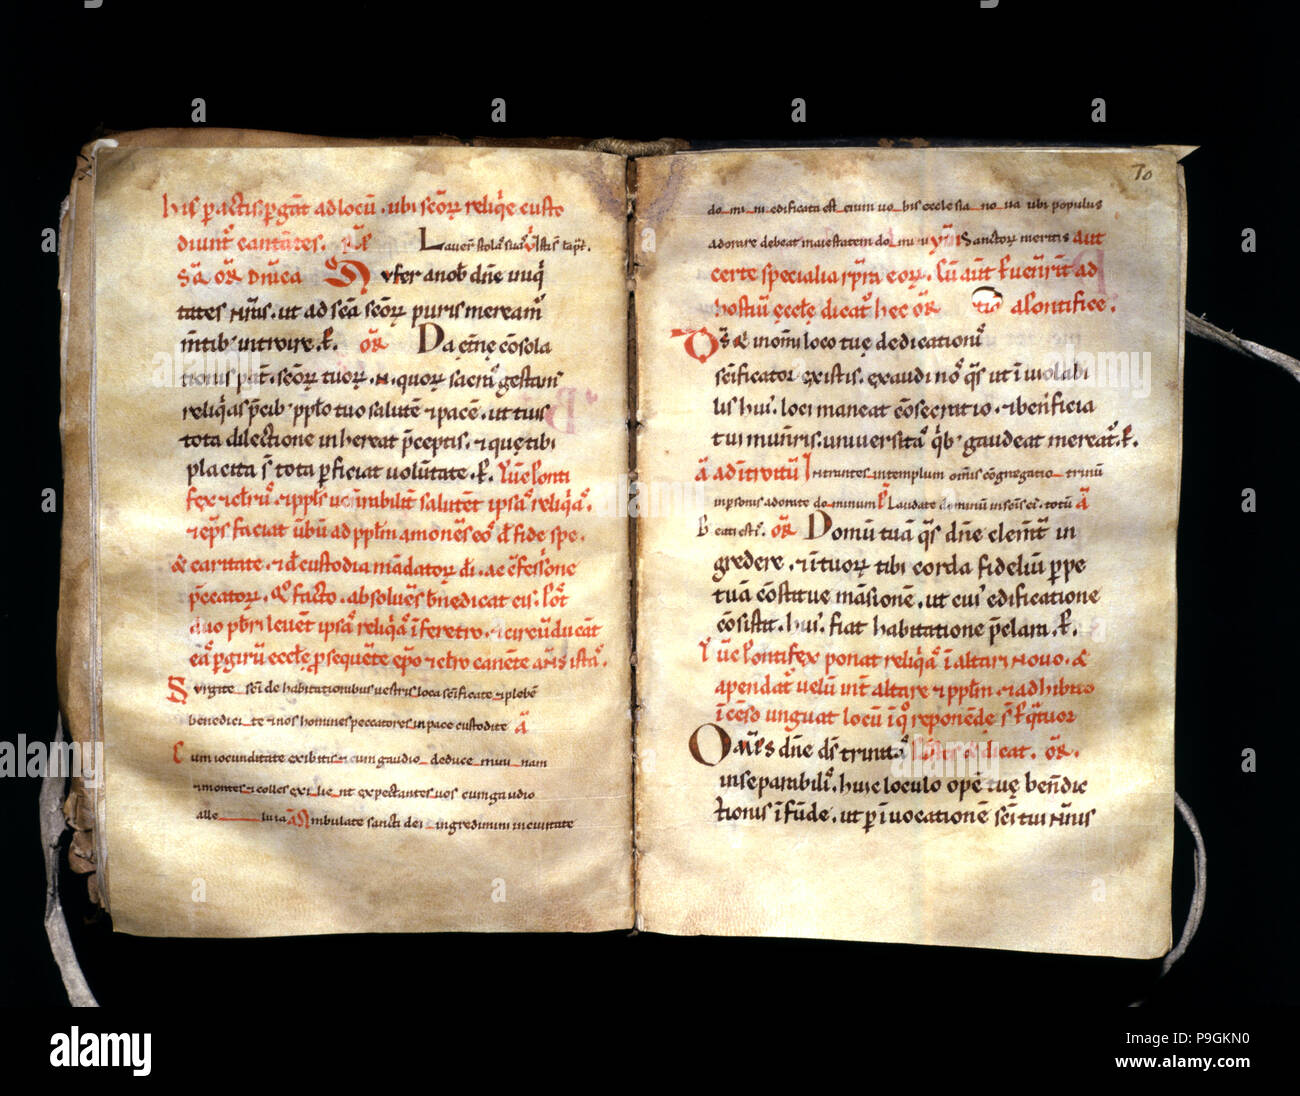 his pactis p̃gant ad locū. ubi scōꝝ reliq̃e custo
diunt᷑ cantãtes.
Lauer̃ stolas suas
Sc̃a or̃ dñica Aufer a nob̾ dñe iniqͥ
tates nr̃as. ut ad sc̃a scōꝝ puris meream᷑
m̃tib᷑ introire. P̃. Or̃ Da ęt̃nę cōsola
tionis pat̃. scōꝝ tuoꝝ. quoꝝ sacri gestam̃
reliq̃as p̃cib᷑ pplo tuo salutē ⁊ pacē. ut tuis
tota dilectione inhereat p̃ceptis. ⁊ quę tibi
placita s̃ tota p̃ficiat volūtate. P̃. Tūc ponti
fex ⁊ cler᷑. ⁊ ppl's salutēt ipsas reliq̃as.
⁊ ep̃s faciat ūbū ad pplm amonēs eos de fide spe.
& caritate. ⁊ de custodia mādatoꝝ di. ac cōfessione
peccatoꝝ. Q̊ facto. absoluēs b̃nedicat eis. Post
duo p̃bri leuent ipsas reliq̃as ī feretro. ⁊ circūducāt
eas p̃ girū eccle. p̃sequēte ep̃o ⁊ clero canēte an̄s istas.
Surgite sc̃i de habitationibus vestris loca sc̃ificate ⁊ plebē
benedicite ⁊ nos homines peccatores in pace custodite A̅
Cum iocunditate exibitis ⁊ cum gaudio deducemini nam
⁊ montes ⁊ colles exilient expectantes vos cum gaudio
alleluia A̅ Ambulate sancti dei ingredimini in civitate
70
domini edificata est enim vobis ecclesia nova ubi populus
adorare debeat maiestatem domini Sanctoꝝ meritis Aut
certe specialia eoꝝ. Cū aut̃ p̃uen̄int ad
hostiū ęccle dicat᷑ hec or̃atio a Pontifice.
Ds̃ q in om̃i loco tuę dedicationis
sc̃ificator existis. exaudi nos q̃s ut īviolabi
lis hui᷑ loci maneat cōsecratio. ⁊ b̃nficia
tui mun̄is. universitas q̃ gaudeat mereat᷑. P̃.
A̅ ad introitū Intrantes in templum om̃is cōgregatio trinū
in p̃sonis adorate dominum P̃ Laudate dominū in sc̃is ei᷑. totū A̅
Beati est̃. Or̃ Domū tuā q̃s dñe clem̃t in
gredere. ⁊ ī tuoꝝ tibi corda fideliū p̃pe
tuā cōstitue māsionē. ut cui᷑ edificatione
cōsistit. hui᷑. fiat habitatione p̃clara. P̃.
Tūc Pontifex ponat reliq̃as ī altari novo. &
apendat᷑ velū int̃ altare ⁊ pplm. ⁊ adhibito
īcēso unguat locū ī q̊ reponēde s̃
Om̃ps dñe ds̃ trinitas dicat. Or̃.
inseparabilis. huic loculo opē tuę b̃ndic
tionis īfūde. ut p̃ īvocationē sc̃i tui nr̃is
alamy
Image ID: P9GKN0
www.alamy.com